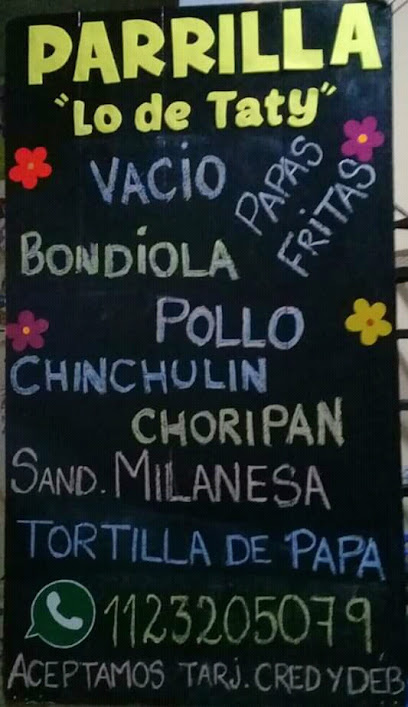 PARRILLA
"Lo de Taty"
VACiO
PAPAS
FRiTAS
BONDiOLA
POLLO
CHINCHULIN
CHORIPAN
SAND. MILANESA
TORTILLA DE PAPA
1123205079
ACEPTAMOS TARJ. CRED Y DÉB